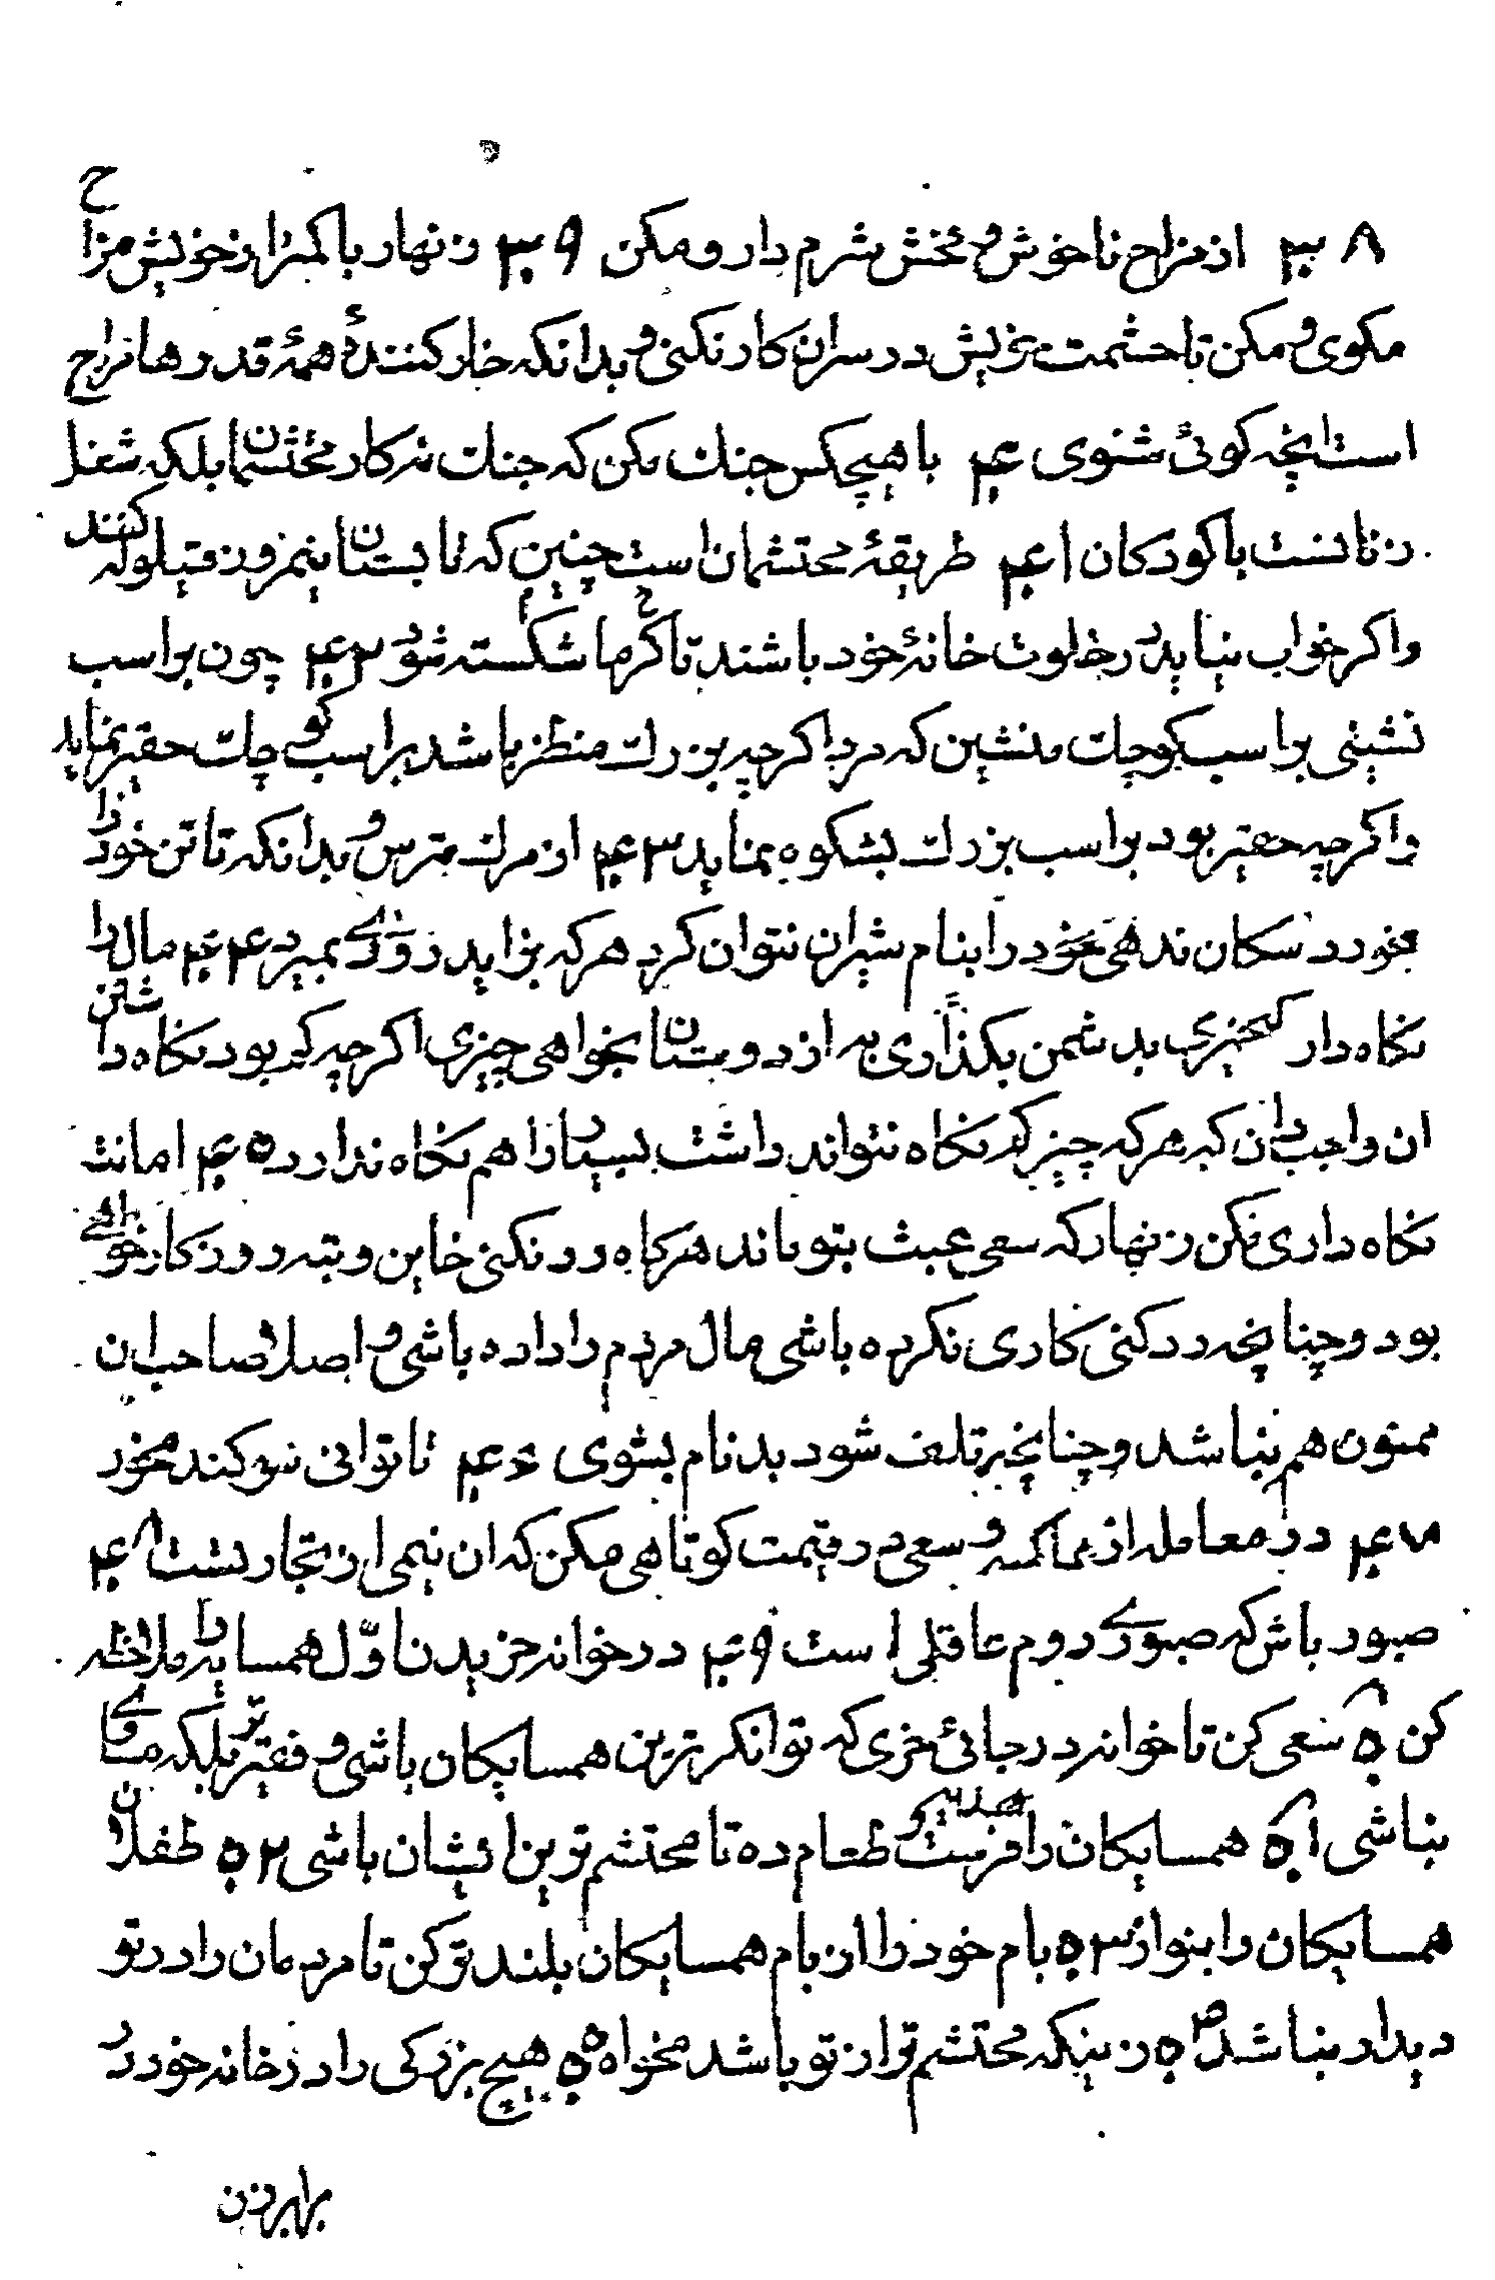 ۳۸ از مزاح ناخوش و فحش شرم دار و مکن ۳۹ زنهار با کمتر از خویش مزاح
مکوی و مکن تا حشمت خویش در سران کار نکنی و بدانکه خار کنندهٔ همهٔ قدرها مزاح
است انچه کوئی شنوی ۴۰ با هیچکس جنك مکن که جنك نه کار محتشمان بلکه شغل
زنانست با کودکان ۴۱ طریقهٔ محتشمان است چنین که تابستان نیمروز قیلوله کنند
واکر خواب نیاید در خلوت خانهٔ خود باشند تا کرما شکسته شود ۴۲ چون بر اسب
نشینی بر اسب کوچك منشین که مرد اکرچه بزرك منظر باشد بر اسب کوچك حقیر نماید
واکرچه حقیر بود بر اسب بزرك بشکوه نماید ۴۳ از مرك مترس و بدانکه تا تن خود را
بخورد سکان ندهی خود را بنام شیران نتوان کرد هرکه بزاید روزی بمیرد ۴۴ مال را
نکاه دار کەچیزی بدشمن بکذاری به از دوستان بخواهی چیزی اکرچه کم بود نکاه داشتن
ان واجب دان که هرکه چیز کم نکاه نتواند داشت بسیار را هم نکاه ندارد ۴۵ امانت
نکاه داری مکن زنهار که سعی عبث بتو ماند هرکاه رد نکنی خاین و تبه روزکار خواهی
بود و چنانچه رد کنی کاری نکرده باشی مال مردم را داده باشی و اصلا صاحب ان
ممنون هم نباشد و چنانچه تلف شود بدنام بشوی ۴۶ تا توانی سوکند مخور
۴۷ در معامله از مماکسه و سعی در قیمت کوتاهی مکن که ان نیمی از تجارتست ۴۸
صبور باش که صبوری دوم عاقلی است ۴۹ در خوانه خریدن اول همسایه را ملاحظه
کن ۵۰ سعی کن تا خوانه در جائی خری که توانکرترین همسایکان باشی و فقیرتر بلکه مساوی
نباشی ۵۱ همسایکان را هدیه فرست و طعام ده تا محتشم ترین ایشان باشی ۵۲ طفلان
همسایکان را بنواز ۵۳ بام خود را از بام همسایکان بلند تر کن تا مردمان را در تو
دیدار نباشد ۵۴ زنیکه محتشم تر از تو باشد مخواه ۵۵ هیچ بزرکی را در خانه خود در
برابر زن